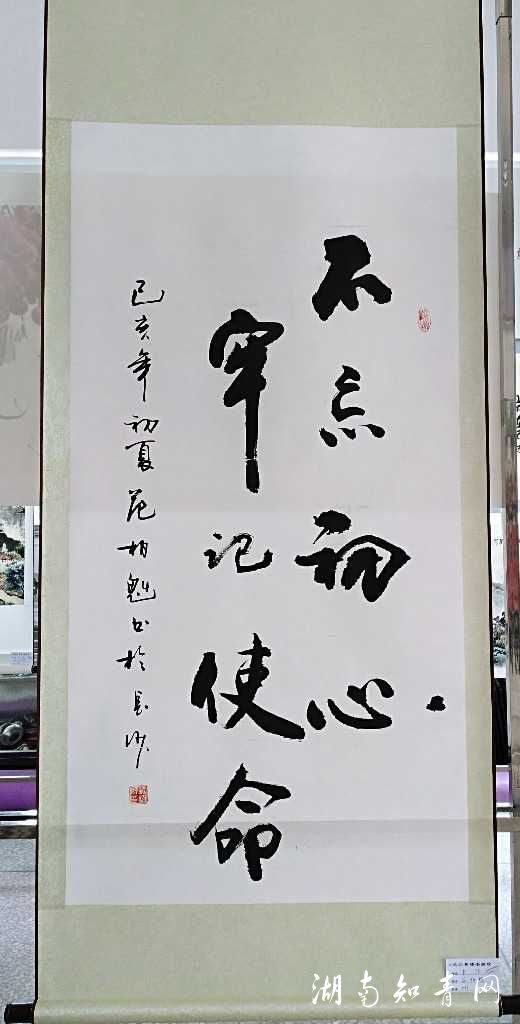 不忘初心
牢记使命
己亥年初夏范柏魁书于长沙
湖南知青网